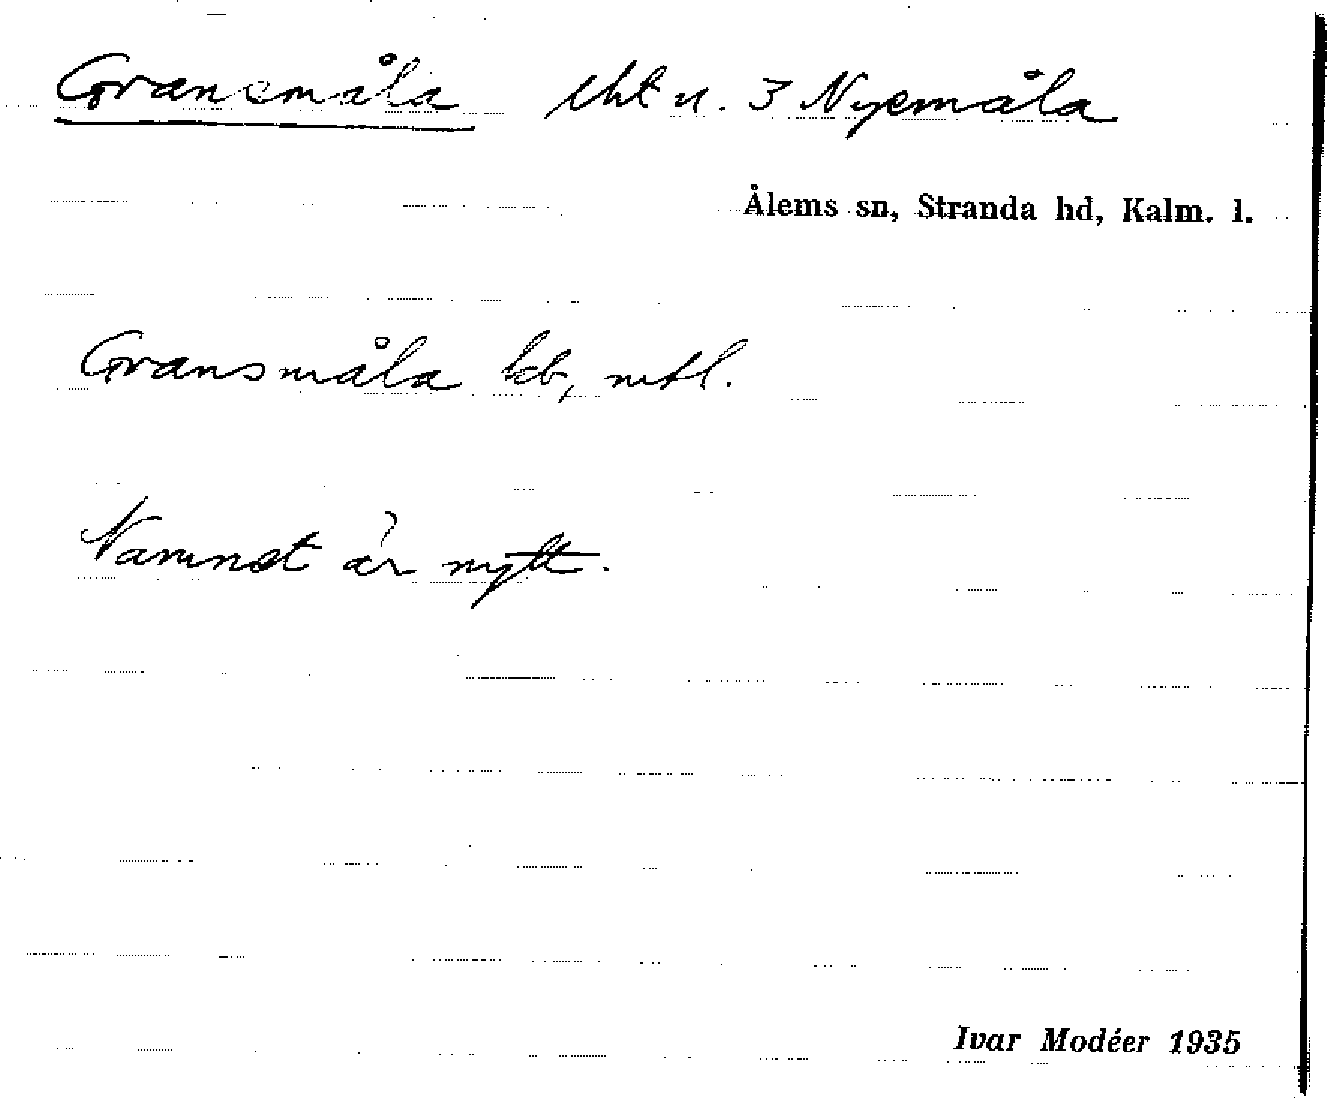 Gransmåla uht u. 3 Nyemåla
Ålems sn, Stranda hd, Kalm. l.
Gransmåla kb, mtl.
Namnet är nytt.
Ivar Modéer 1935